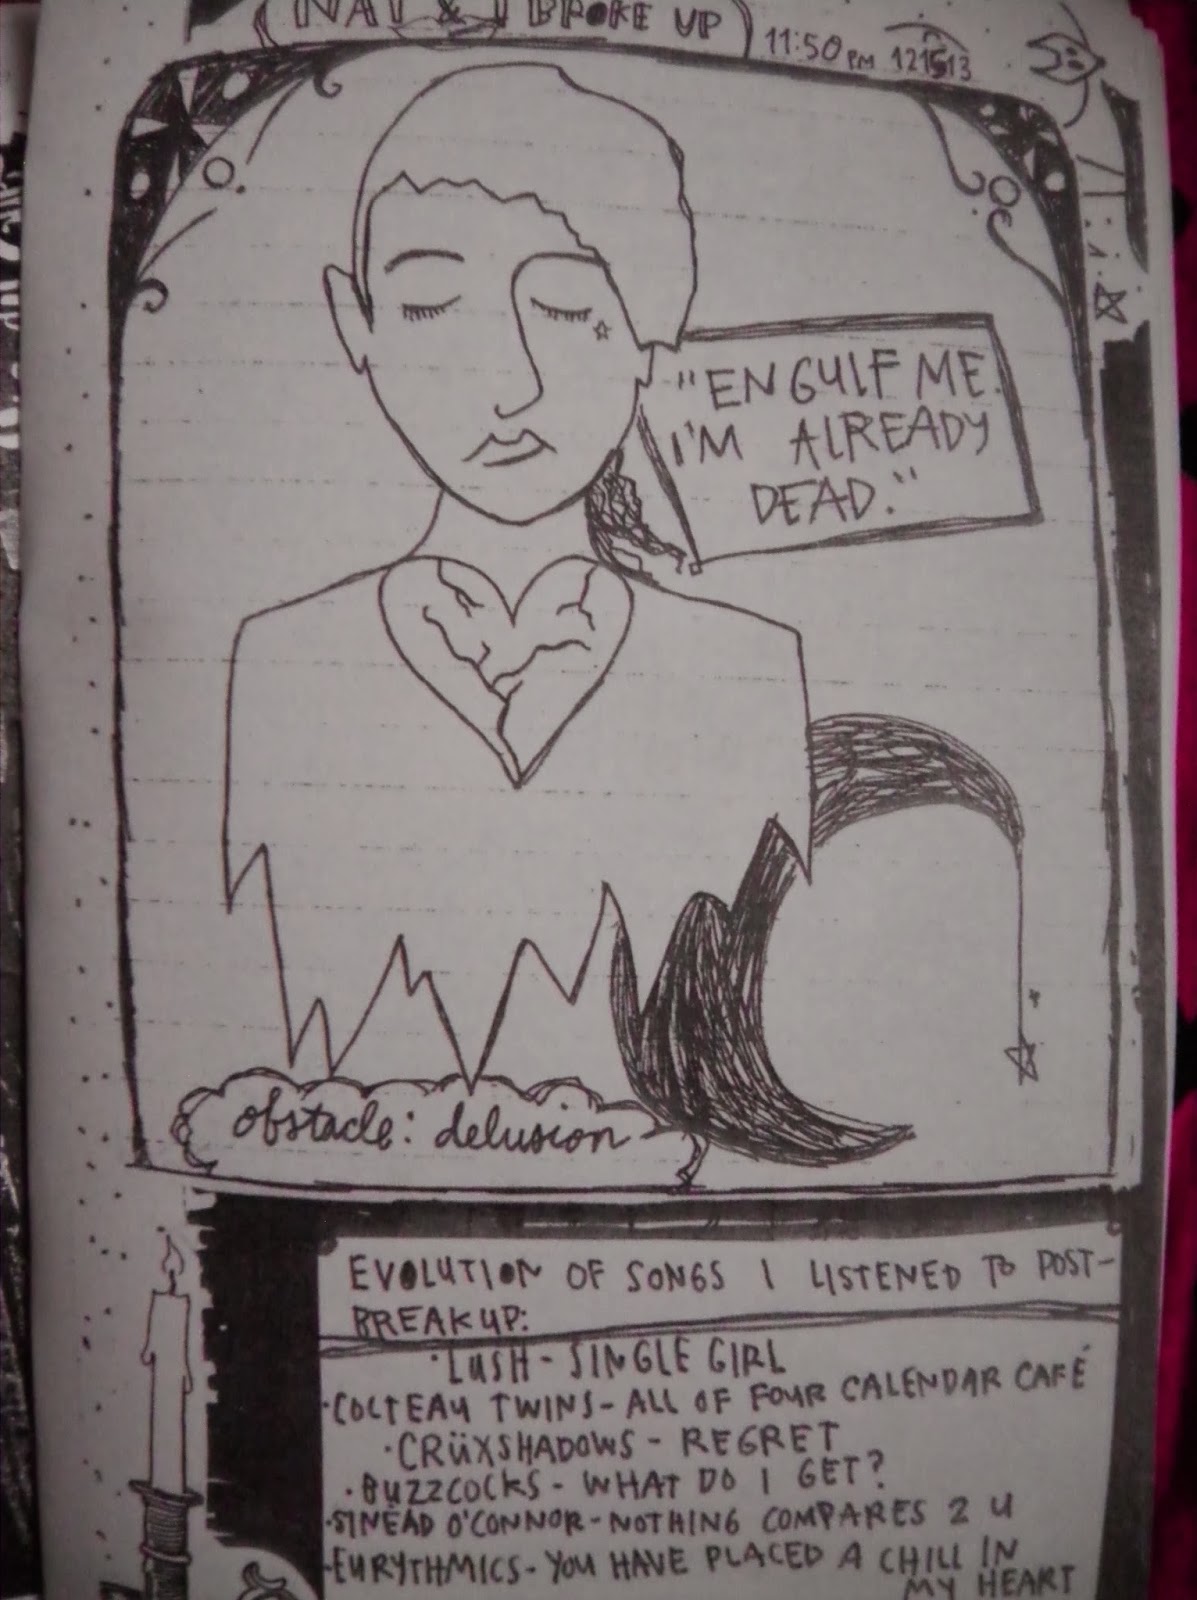 NAT & I BROKE UP
11:50 PM 121513
"ENGULF ME.
I'M ALREADY
DEAD."
obstacle: delusion
EVOLUTION OF SONGS I LISTENED TO POST-
BREAKUP:
·LUSH - SINGLE GIRL
·COCTEAU TWINS - ALL OF FOUR CALENDAR CAFÉ
·CRÜXSHADOWS - REGRET
·BUZZCOCKS - WHAT DO I GET?
·SINÉAD O'CONNOR - NOTHING COMPARES 2 U
·EURYTHMICS - YOU HAVE PLACED A CHILL IN
MY HEART